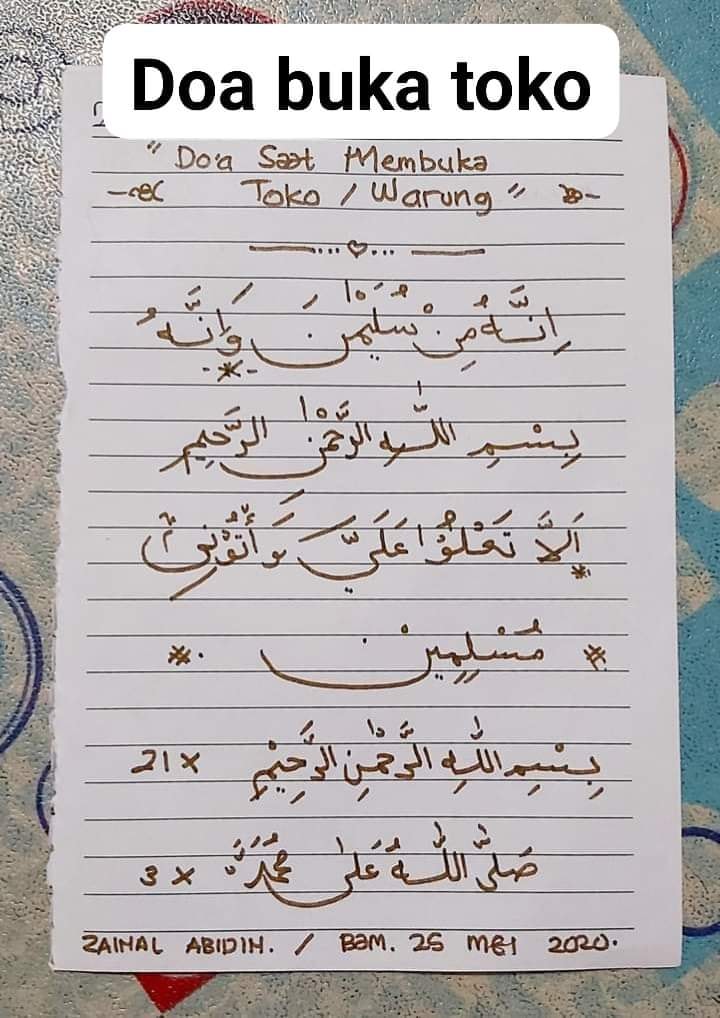 Doa buka toko
" Do'a Saat Membuka
Toko / Warung "
اِنَّهُ مِنْ سُلَيْمٰنَ وَاِنَّهُ
بِسْمِ اللّٰهِ الرَّحْمٰنِ الرَّحِيْمِ
اَلَّا تَعْلُوْا عَلَيَّ وَأْتُوْنِيْ
مُسْلِمِيْنَ
بِسْمِ اللّٰهِ الرَّحْمٰنِ الرَّحِيْمِ 21 x
صَلَّى اللّٰهُ عَلٰى مُحَمَّدْ 3 x
ZAINAL ABIDIN. / BAM. 25 MEI 2020.